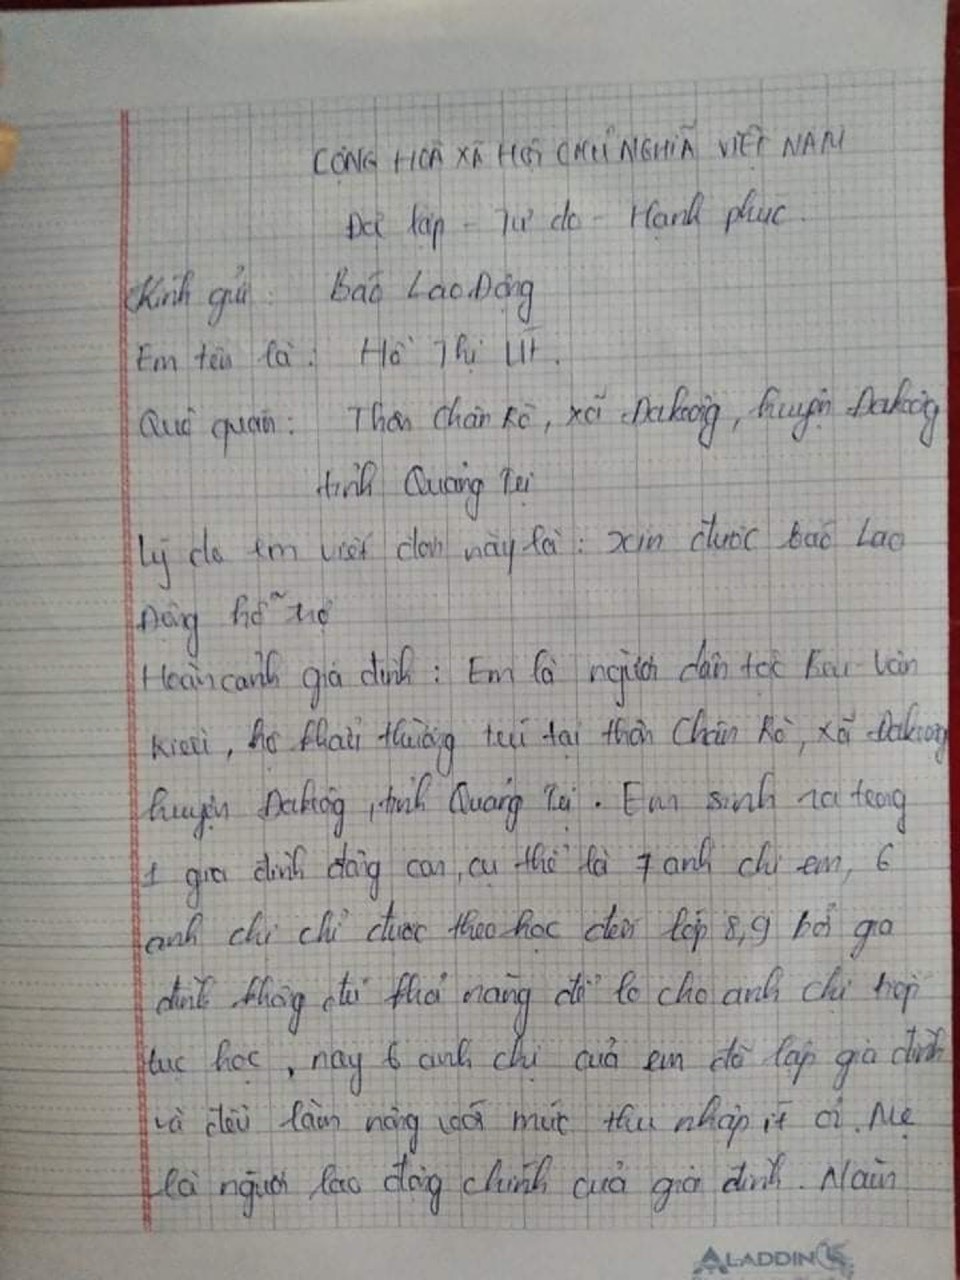 CỘNG HOÀ XÃ HỘI CHỦ NGHĨA VIỆT NAM
Độc lập - Tự do - Hạnh phúc.
Kính gửi: Báo Lao Động
Em tên là: Hồ Thị Út.
Quê quán: Thôn Chân Rò, xã Dakrông, huyện Dakrông
tỉnh Quảng Trị
Lý do em viết đơn này là: xin được báo Lao
Động hỗ trợ
Hoàn cảnh gia đình: Em là người dân tộc Bru-Vân
Kiều, hộ khẩu thường trú tại thôn Chân Rò, xã Dakrông
huyện Dakrông, tỉnh Quảng Trị. Em sinh ra trong
1 gia đình đông con, cụ thể là 7 anh chị em, 6
anh chị chỉ được theo học đến lớp 8,9 bởi gia
đình không đủ khả năng để lo cho anh chị tiếp
tục học, nay 6 anh chị của em đã lập gia đình
và đều làm nông với mức thu nhập ít ỏi. Mẹ
là người lao động chính của gia đình. Năm
ALADDIN